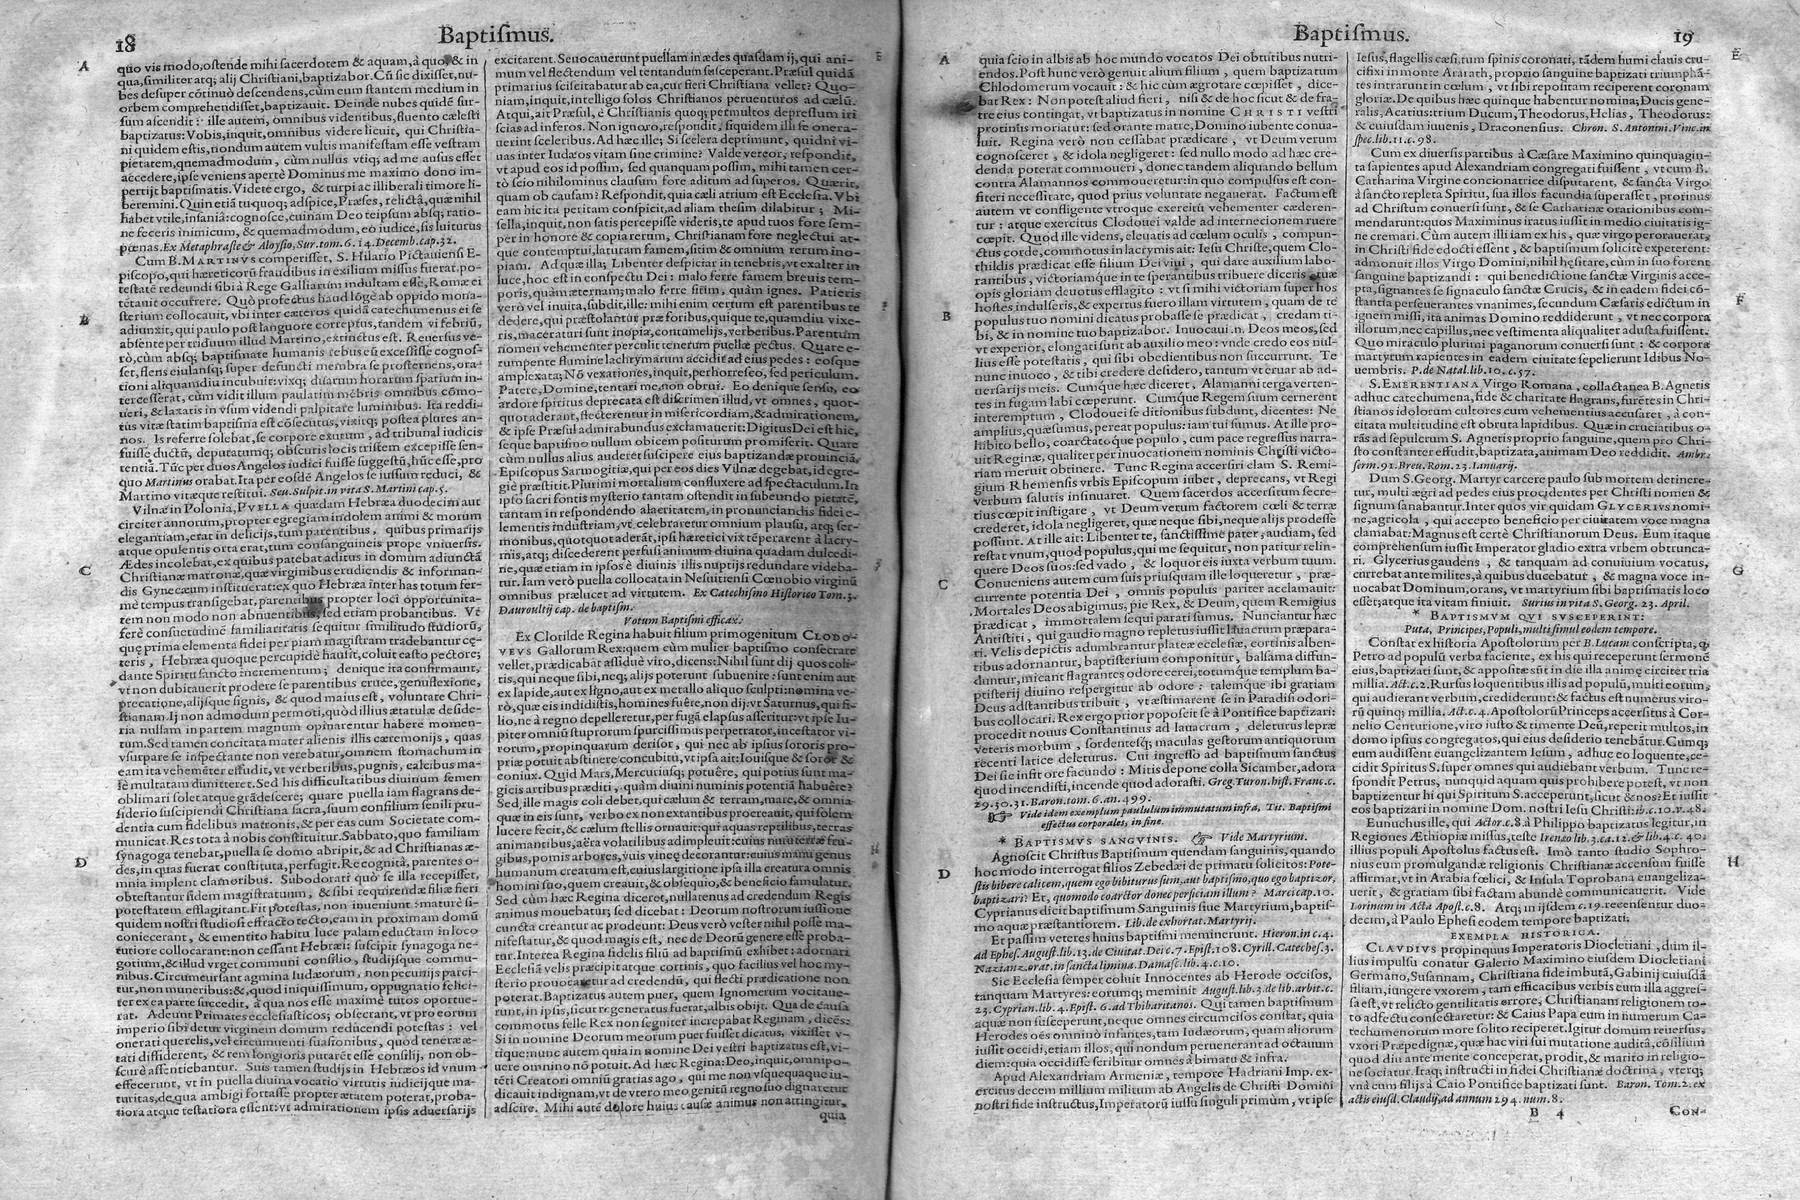 18
Baptiſmus.
A
quo vis modo, oſtende mihi ſacerdotem & aquam, à quo, & in
qua, ſimiliter atq; alij Chriſtiani, baptizabor. Cũ ſic dixiſſet, nu-
bes deſuper cõtinuò deſcendens, cùm eum ſtantem medium in
orbem comprehendiſſet, baptizauit. Deinde nubes quidẽ ſur-
ſum aſcendit: ille autem, omnibus videntibus, fluento cæleſti
baptizatus: Vobis, inquit, omnibus videre licuit, qui Chriſtia-
ni quidem eſtis, nondum autem vultis manifeſtam eſſe veſtram
pietatem, quemadmodum, cùm nullus vtiq; ad me auſus eſſet
accedere, ipſe veniens apertè Dominus me maximo dono im-
pertijt baptiſmatis. Videte ergo, & turpi ac illiberali timore li-
beremini. Quin etiã tu quoq; adſpice, Præſes, relictâ, quæ nihil
habet vtile, inſaniâ: cognoſce, cuinam Deo teipſum abſq; ratio-
ne feceris inimicum, & quemadmodum, eo iudice, ſis luiturus
pœnas. Ex Metaphraſte & Aloyſio, Sur. tom. 6. 14. Decemb. cap. 32.
Cum B. MARTINVS comperiſſet, S. Hilario Pictauienſi E-
piſcopo, qui hæreticorũ fraudibus in exilium miſſus fuerat, po-
teſtatẽ redeundi ſibi à Rege Galliarum indultam eſſe, Romæ ei
tẽtauit occurrere. Quò profectus haud lõgè ab oppido mona-
B
ſterium collocauit, vbi inter cæteros quidã catechumenus ei ſe
adiunxit, qui paulo poſt languore correptus, tandem vi febriũ,
abſente per triduum illud Martino, extinctus eſt. Reuerſus ve-
rò, cùm abſq; baptiſmate humanis rebus eũ exceſſiſſe cognoſ-
ſet, flens eiulansq; ſuper defuncti membra ſe proſternens, ora-
tioni aliquamdiu incubuit: vixq; duarum horarum ſpatium in-
terceſſerat, cùm vidit illum paulatim mẽbris omnibus cõmo-
ueri, & laxatis in vſum videndi palpitare luminibus. Ita reddi-
tus vitæ ſtatim baptiſma eſt cõſecutus, vixitq; poſtea plures an-
nos. Is referre ſolebat, ſe corpore exutum, ad tribunal iudicis
fuiſſe ductũ, deputatumq; obſcuris locis triſtem excepiſſe ſen-
tentiã. Tũc per duos Angelos iudici fuiſſe ſuggeſtũ, hũc eſſe, pro
quo Martinus orabat. Ita per eoſdẽ Angelos ſe iuſſum reduci, &
Martino vitæque reſtitui. Seu. Sulpit. in vita S. Martini cap. 5.
Vilnæ in Polonia, PVELLA quædam Hebræa duodecim aut
circiter annorum, propter egregiam indolem animi & morum
elegantiam, erat in delicijs, tum parentibus, quibus primarijs
atque opulentis orta erat, tum conſanguineis prope vniuerſis.
Ædes incolebat, ex quibus patebat aditus in domum adiunctã
C
Chriſtianæ matronæ, quæ virginibus erudiendis & informan-
dis Gynecæum inſtituerat: ex quo Hebræa inter has totum fer-
mè tempus tranſigebat, parentibus propter loci opportunita-
tem non modo non abnuentibus, ſed etiam probantibus. Vt
ferè conſuetudinẽ familiaritatis ſequitur ſimilitudo ſtudiorũ,
quę prima elementa fidei per piam magiſtram tradebantur cę-
teris, Hebræa quoque percupidè hauſit, coluit caſto pectore;
dante Spiritu ſancto incrementum; denique ita confirmauit,
vt non dubitauerit prodere ſe parentibus cruce, genuflexione,
precatione, alijſque ſignis, & quod maius eſt, voluntate Chri-
ſtianam. Ij non admodum permoti, quòd illius ætatulæ deſide-
ria nullam in partem magnum opinarentur habere momen-
tum. Sed tamen concitata mater alienis illis cæremonijs, quas
vſurpare ſe inſpectante non verebatur, omnem ſtomachum in
eam ita vehemẽter effudit, vt verberibus, pugnis, calcibus ma-
lè multatam dimitteret. Sed his difficultatibus diuinum ſemen
oblimari ſolet atque grãdeſcere; quare puella iam flagrans de-
ſiderio ſuſcipiendi Chriſtiana ſacra, ſuum conſilium ſenili pru-
dentia cum fidelibus matronis, & per eas cum Societate com-
municat. Res tota à nobis conſtituitur. Sabbato, quo familiam
ſynagoga tenebat, puella ſe domo abripit, & ad Chriſtianas æ-
D
des, in quas fuerat conſtituta, perfugit. Recognitâ, parentes o-
mnia implent clamoribus. Subodorati quò ſe illa recepiſſet,
obteſtantur fidem magiſtratuum, & ſibi requirendæ filiæ fieri
poteſtatem efflagitant. Fit poteſtas, non inueniunt: maturè ſi-
quidem noſtri ſtudioſi effracto tecto, eam in proximam domũ
conicerant, & ementito habitu luce palam eductam in loco
tutiore collocarant: non ceſſant Hebræi: ſuſcipit ſynagoga ne-
gotium, & illud vrget communi conſilio, ſtudijſque commu-
nibus. Circumeurſant agmina Iudæorum, non pecunijs parci-
tur, non muneribus: &, quod iniquiſſimum, oppugnatio felici-
ter ex ea parte ſuccedit, à qua nos eſſe maximè tutos oportue-
rat. Adeunt Primates eccleſiaſticos; obſecrant, vt pro eorum
imperio ſibi detur virginem domum reducendi poteſtas: vel
onerati querelis, vel circumuenti ſuaſionibus, quod teneræ æ-
tati diffiderent, & rem longioris putarẽt eſſe conſilij, non ob-
ſcurè aſſentiebantur. Suis tamen ſtudijs in Hebræos id vnum
effecerunt, vt in puella diuina vocatio virtutis iudicijque ma-
turitas, de qua ambigi fortaſſe propter ætatem poterat, proba-
tiora atque teſtatiora eſſent: vt admirationem ipſis aduerſarijs
excitarent. Seuocauerunt puellam in ædes quaſdam ij, qui ani-
mum vel flectendum vel tentandum ſuſceperant. Præſul quidã
primarius ſciſcitabatur ab ea, cur fieri Chriſtiana vellet? Quo-
niam, inquit, intelligo ſolos Chriſtianos peruenturos ad cælũ.
Atqui, ait Præſul, è Chriſtianis quoq; permultos depreſſum iri
ſcias ad inferos. Non ignoro, reſpondit, ſiquidem illi ſe onera-
uerint ſceleribus. Ad hæc ille; Si ſcelera deprimunt, quidni vi-
uas inter Iudæos vitam ſine crimine? Valde vereor, reſpondit,
vt apud eos id poſſim, ſed quanquam poſſim, mihi tamen cer-
tò ſcio nihilominus clauſum fore aditum ad ſuperos. Quærit,
quam ob cauſam? Reſpondit, quia cæli atrium eſt Eccleſia. Vbi
eam hic ita petitam conſpicit, ad aliam theſim dilabitur; Mi-
ſella, inquit, non ſatis percipiſſe videris, te apud tuos fore ſem-
per in honore & copiarum, Chriſtianam fore neglectui at-
que contemptui, laturam famem, ſitim & omnium rerum ino-
piam. Ad quæ illa; Libenter deſpiciar in tenebris, vt exalter in
luce, hoc eſt in conſpectu Dei: malo ferre famem breuis tem-
poris, quàm æternam; malo ferre ſitim, quàm ignes. Patieris
verò vel inuita, ſubdit, ille: mihi enim certum eſt parentibus te
dedere, qui præſtolantur præ foribus, quique te, quamdiu vixe-
ris, maceraturi ſunt inopia, contumelijs, verberibus. Parentum
nomen vehementer perculit tenerum puellæ pectus. Quare e-
rumpente flumine lachrymarum accidit ad eius pedes: eoſque
amplexata; Nõ vexationes, inquit, perhorreſco, ſed periculum.
Patere, Domine, tentari me, non obrui. Eo denique ſenſu, eo
ardore ſpiritus deprecata eſt diſcrimen illud, vt omnes, quot-
quot aderant, flecterentur in miſericordiam, & admirationem,
& ipſe Præſul admirabundus exclamauerit: Digitus Dei eſt hic,
ſeque baptiſmo nullum obicem poſiturum promiſerit. Quare
cùm nullus alius auderet ſuſcipere eius baptizandæ prouinciã,
Epiſcopus Sarmogitiæ, qui per eos dies Vilnæ degebat, id egre-
giè præſtitit. Plurimi mortalium confluxere ad ſpectaculum. In
ipſo ſacri fontis myſterio tantam oſtendit in ſubeundo pietatẽ,
tantam in reſpondendo alacritatem, in pronunciandis fidei e-
lementis induſtriam, vt celebraretur omnium plauſu, atq; ſer-
monibus, quotquot aderãt, ipſi hæretici vix tẽperarent à lacry-
mis, atq; diſcederent perfuſi animum diuina quadam dulcedi-
ne, quæ etiam in ipſos è diuinis illis nuptijs redundare videba-
tur. Iam verò puella collocata in Neſuitienſi Cœnobio virginũ
omnibus prælucet ad virtutem. Ex Catechiſmo Hiſtorico Tom. 3.
Dauroultij cap. de baptiſm.
Votum Baptiſmi efficax.
Ex Clotilde Regina habuit filium primogenitum CLODO-
VEVS Gallorum Rex: quem cùm mulier baptiſmo conſecrare
vellet, prædicabat aſſiduè viro, dicens: Nihil ſunt dij quos coli-
tis, qui neque ſibi, neq; alijs poterunt ſubuenire: ſunt enim aut
ex lapide, aut ex ligno, aut ex metallo aliquo ſculpti: nomina ve-
rò, quæ eis indidiſtis, homines fuêre, non dij: vt Saturnus, qui fi-
lio, ne à regno depelleretur, per fugã elapſus aſſeritur: vt ipſe Iu-
piter omniũ ſtuprorum ſpurciſſimus perpetrator, inceſtator vi-
rorum, propinquarum deriſor, qui nec ab ipſius ſororis pro-
priæ potuit abſtinere concubitu, vt ipſa ait: Iouiſque & ſoror &
coniux. Quid Mars, Mercuriusq; potuêre, qui potius ſunt ma-
gicis artibus præditi, quàm diuini numinis potentiã habuêre?
Sed, ille magis coli debet, qui cælum & terram, mare, & omnia
quæ in eis ſunt, verbo ex non extantibus procreauit, qui ſolem
lucere fecit, & cælum ſtellis ornauit: qui aquas reptilibus, terras
animantibus, aëra volatilibus adimpleuit: cuius nutu terræ fru-
gibus, pomis arbores, vuis vineę decorantur: cuius manu genus
humanum creatum eſt, cuius largitione ipſa illa creatura omnis
homini ſuo, quem creauit, & obſequio, & beneficio famulatur.
Sed cùm hæc Regina diceret, nullatenus ad credendum Regis
animus mouebatur; ſed dicebat: Deorum noſtrorum iuſſione
cuncta creantur ac prodeunt: Deus verò veſter nihil poſſe ma-
nifeſtatur, & quod magis eſt, nec de Deorũ genere eſſe proba-
tur. Interea Regina fidelis filiũ ad baptiſmũ exhibet: adornari
Eccleſiã velis præcipit atque cortinis, quo facilius vel hoc my-
ſterio prouocaretur ad credendũ, qui flecti prædicatione non
poterat. Baptizatus autem puer, quem Ignomerum vocitaue-
runt, in ipſis, ſicut regeneratus fuerat, albis obijt. Qua de cauſa
commotus felle Rex non ſegniter increpabat Reginam, dicẽs:
Si in nomine Deorum meorum puer fuiſſet dicatus, vixiſſet v-
tique: nunc autem quia in nomine Dei veſtri baptizatus eſt, vi-
uere omnino nõ potuit. Ad hæc Regina: Deo, inquit, omnipo-
tẽti Creatori omniũ gratias ago, qui me non vſquequaque iu-
dicauit indignam, vt de vtero meo genitũ regno ſuo dignaretur
adſcire. Mihi autẽ dolore huius cauſæ animus non attingitur,
quia
Baptiſmus.
19
A
quia ſcio in albis ab hoc mundo vocatos Dei obtutibus nutri-
endos. Poſt hunc verò genuit alium filium, quem baptizatum
Chlodomerum vocauit: & hic cùm ægrotare cœpiſſet, dice-
bat Rex: Non poteſt aliud fieri, niſi & de hoc ſicut & de fra-
tre eius contingat, vt baptizatus in nomine CHRISTI veſtri
protinus moriatur: ſed orante matre, Domino iubente conua-
luit. Regina verò non ceſſabat prædicare, vt Deum verum
cognoſceret, & idola negligeret: ſed nullo modo ad hæc cre-
denda poterat commoueri, donec tandem aliquando bellum
contra Alamannos commoueretur: in quo compulſus eſt con-
fiteri neceſſitate, quod prius voluntate negauerat. Factum eſt
autem vt confligente vtroque exercitu vehementer cæderen-
tur: atque exercitus Clodouei valde ad internecionem ruere
cœpit. Quod ille videns, eleuatis ad cælum oculis, compun-
ctus corde, commotus in lacrymis ait: Ieſu Chriſte, quem Clo-
thildis prædicat eſſe filium Dei viui, qui dare auxilium labo-
rantibus, victoriamque in te ſperantibus tribuere diceris, tuæ
opis gloriam deuotus efflagito: vt ſi mihi victoriam ſuper hos
hoſtes indulſeris, & expertus fuero illam virtutem, quam de te
B
populus tuo nomini dicatus probaſſe ſe prædicat, credam ti-
bi, & in nomine tuo baptizabor. Inuocaui .n. Deos meos, ſed
vt experior, elongati ſunt ab auxilio meo: vnde credo eos nul-
lius eſſe poteſtatis, qui ſibi obedientibus non ſuccurrunt. Te
nunc inuoco, & tibi credere deſidero, tantum vt eruar ab ad-
uerſarijs meis. Cumque hæc diceret, Alamanni terga verten-
tes in fugam labi cœperunt. Cumque Regem ſuum cernerent
interemptum, Clodouei ſe ditionibus ſubdunt, dicentes: Ne
amplius, quæſumus, pereat populus: iam tui ſumus. At ille pro-
hibito bello, coarctatoque populo, cum pace regreſſus narra-
uit Reginæ, qualiter per inuocationem nominis Chriſti victo-
riam meruit obtinere. Tunc Regina acceſiri clam S. Remi-
gium Rhemenſis vrbis Epiſcopum iubet, deprecans, vt Regi
verbum ſalutis inſinuaret. Quem ſacerdos accerſitum ſecre-
tius cœpit inſtigare, vt Deum verum factorem cœli & terræ
crederet, idola negligeret, quæ neque ſibi, neque alijs prodeſſe
poſſunt. At ille ait: Libenter te, ſanctiſſime pater, audiam, ſed
reſtat vnum, quod populus, qui me ſequitur, non patitur relin-
quere Deos ſuos: ſed vado, & loquor eis iuxta verbum tuum.
C
Conueniens autem cum ſuis priuſquam ille loqueretur, præ-
currente potentia Dei, omnis populus pariter acclamauit:
Mortales Deos abigimus, pie Rex, & Deum, quem Remigius
prædicat, immortalem ſequi parati ſumus. Nunciantur hæc
Antiſtiti, qui gaudio magno repletus iuſſit lauacrum præpara-
ri. Velis depictis adumbrantur plateæ eccleſiæ, cortinis alben-
tibus adornantur, baptiſterium componitur, balſama diffun-
duntur, micant flagrantes odore cerei, totumque templum ba-
ptiſterij diuino reſpergitur ab odore: talemque ibi gratiam
Deus adſtantibus tribuit, vt æſtimarent ſe in Paradiſi odori-
bus collocari. Rex ergo prior popoſcit ſe à Pontifice baptizari:
procedit nouus Conſtantinus ad lauacrum, deleturus lepræ
veteris morbum, ſordentesq; maculas geſtorum antiquorum
recenti latice deleturus. Cui ingreſſo ad baptiſmum ſanctus
Dei ſic infit ore facundo: Mitis depone colla Sicamber, adora
quod incendiſti, incende quod adoraſti. Greg. Turon. hiſt. Franc. c.
29. 30. 31. Baron. tom. 6. an. 499.
☞ Vide idem exemplum paululum immutatum infra, Tit. Baptiſmi
effectus corporales, in fine.
* BAPTISMVS SANGVINIS. ☞ Vide Martyrium.
Agnoſcit Chriſtus Baptiſmum quendam ſanguinis, quando
D
hoc modo interrogat filios Zebedæi de primatu ſolicitos: Pote-
ſtis bibere calicem, quem ego bibiturus ſum, aut baptiſmo, quo ego baptizor,
baptizari? Et, quomodo coarctor donec perficiam illum? Marci cap. 10.
Cyprianus dicit baptiſmum Sanguinis ſiue Martyrium, baptiſ-
mo aquæ præſtantiorem. Lib. de exhortat. Martyrij.
Et paſſim veteres huius baptiſmi meminerunt. Hieron. in c. 4.
ad Epheſ. Auguſt. lib. 13. de Ciuitat. Dei c. 7. Epiſt. 108. Cyrill. Catecheſ. 3.
Nazianz. orat. in ſancta limina. Damaſc. lib. 4. c. 10.
Sic Eccleſia ſemper coluit Innocentes ab Herode occiſos,
tanquam Martyres: eorumq; meminit Auguſt. lib. 3. de lib. arbit. c.
23. Cyprian. lib. 4. Epiſt. 6. ad Thibaritanos. Qui tamen baptiſmum
aquæ non ſuſceperunt, neque omnes circumciſos conſtat, quia
Herodes oẽs omninò infantes, tam Iudæorum, quàm aliorum
iuſſit occidi, etiam illos, qui nondum peruenerant ad octauum
diem: quia occidiſſe ſcribitur omnes à bimatu & infra.
Apud Alexandriam Armeniæ, tempore Hadriani Imp. ex-
ercitus decem millium militum ab Angelis de Chriſti Domini
noſtri fide inſtructus, Imperatorũ iuſſu ſinguli primùm, vt ipſe
E
Ieſus, flagellis cæſi, tum ſpinis coronati, tãdem humi clauis cru-
cifixi in monte Ararath, proprio ſanguine baptizati triumphã-
tes intrarunt in cœlum, vt ſibi repoſitam reciperent coronam
gloriæ. De quibus hæc quinque habentur nomina; Ducis gene-
ralis, Acatius: trium Ducum, Theodorus, Helias, Theodorus:
& cuiuſdam iuuenis, Draconenſius. Chron. S. Antonini. Vinc. in
ſpec. lib. 11. c. 98.
Cum ex diuerſis partibus à Cæſare Maximino quinquagin-
ta ſapientes apud Alexandriam congregati fuiſſent, vt cum B.
Catharina Virgine concionatrice diſputarent, & ſancta Virgo
à ſancto repleta Spiritu, ſua illos facundia ſuperaſſet, protinus
ad Chriſtum conuerſi ſunt, & ſe Catharinæ orationibus com-
mendarunt: quos Maximinus iratus iuſſit in medio ciuitatis ig-
ne cremari. Cùm autem illi iam ex his, quæ virgo perorauerat,
in Chriſti fide edocti eſſent, & baptiſmum ſolicitè expeterent:
admonuit illos Virgo Domini, nihil hęſitare, cùm in ſuo forent
ſanguine baptizandi: qui benedictione ſanctæ Virginis acce-
pta, ſignantes ſe ſignaculo ſanctæ Crucis, & in eadem fidei cõ-
F
ſtantia perſeuerantes vnanimes, ſecundum Cæſaris edictum in
ignem miſſi, ita animas Domino reddiderunt, vt nec corpora
illorum, nec capillus, nec veſtimenta aliqualiter aduſta fuiſſent.
Quo miraculo plurimi paganorum conuerſi ſunt: & corpora
martyrum rapientes in eadem ciuitate ſepelierunt Idibus No-
uembris. P. de Natal. lib. 10. c. 57.
S. EMERENTIANA Virgo Romana, collactanea B. Agnetis
adhuc catechumena, fide & charitate flagrans, furẽtes in Chri-
ſtianos idolorum cultores cum vehementius accuſaret, à con-
citata multitudine eſt obruta lapidibus. Quæ in cruciatibus o-
rãs ad ſepulcrum S. Agnetis proprio ſanguine, quem pro Chri-
ſto conſtanter effudit, baptizata, animam Deo reddidit. Ambr.
ſerm. 91. Breu. Rom. 23. Ianuarij.
Dum S. Georg. Martyr carcere paulo ſub mortem detinere-
tur, multi ægri ad pedes eius procidentes per Chriſti nomen &
ſignum ſanabantur. Inter quos vir quidam GLYCERIVS nomi-
ne, agricola, qui accepto beneficio per ciuitatem voce magna
clamabat: Magnus eſt certè Chriſtianorum Deus. Eum itaque
comprehenſum iuſſit Imperator gladio extra vrbem obtrunca-
G
ri. Glycerius gaudens, & tanquam ad conuiuium vocatus,
currebat ante milites, à quibus ducebatur, & magna voce in-
uocabat Dominum, orans, vt martyrium ſibi baptiſmatis loco
eſſet; atque ita vitam finiuit. Surius in vita S. Georg. 23. April.
* BAPTISMVM QVI SVSCEPERINT:
Puta, Principes, Populi, multi ſimul eodem tempore.
Conſtat ex hiſtoria Apoſtolorum per B. Lucam conſcripta, q;
Petro ad populũ verba faciente, ex his qui receperunt ſermonẽ
eius, baptizati ſunt, & appoſitæ ſũt in die illa animę circiter tria
millia. Act. c. 2. Rurſus loquentibus illis ad populũ, multi eorum,
qui audierant verbum, crediderunt: & factus eſt numerus viro-
rũ quinq; millia. Act. c. 4. Apoſtolorũ Princeps accerſitus à Cor-
nelio Centurione, viro iuſto & timente Deũ, reperit multos, in
domo ipſius congregatos, qui eius deſiderio tenebãtur. Cumq;
eum audiſſent euangelizantem Ieſum, adhuc eo loquente, ce-
cidit Spiritus S. ſuper omnes qui audiebant verbum. Tunc re-
ſpondit Petrus, nunquid aquam quis prohibere poteſt, vt non
baptizentur hi qui Spiritum S. acceperunt, ſicut & nos? Et iuſſit
eos baptizari in nomine Dom. noſtri Ieſu Chriſti: ib. c. 10. v. 48.
Eunuchus ille, qui Actor. c. 8. à Philippo baptizatus legitur, in
Regiones Æthiopiæ miſſus, teſte Ireneo lib. 3. ca. 12. & lib. 4. c. 40.
illius populi Apoſtolus factus eſt. Imò tanto ſtudio Sophro-
H
nius eum promulgandæ religionis Chriſtianæ accenſum fuiſſe
affirmat, vt in Arabia fœlici, & Inſula Toprobana euangeliza-
uerit, & gratiam ſibi factam abundè communicauerit. Vide
Lorinum in Acta Apoſt. c. 8. Atq; in ijſdem c. 19. recenſentur duo-
decim, à Paulo Epheſi eodem tempore baptizati;
EXEMPLA HISTORICA.
CLAVDIVS propinquus Imperatoris Diocletiani, dum il-
lius impulſu conatur Galerio Maximino eiuſdem Diocletiani
Germano, Suſannam, Chriſtiana fide imbutã, Gabinij cuiuſdã
filiam, iungere vxorem, tam efficacibus verbis eum illa aggreſ-
ſa eſt, vt relicto gentilitatis errore, Chriſtianam religionem to-
to adfectu conſectaretur: & Caius Papa eum in numerum Ca-
techumenorum more ſolito reciperet. Igitur domum reuerſus,
vxori Præpedignæ, quæ hac viri ſui mutatione auditâ, cõſilium
quod diu ante mente conceperat, prodit, & marito in religio-
ne ſociatur. Itaq; inſtructi in fidei Chriſtianæ doctrina, vterq;
vnà cum filijs à Caio Pontifice baptizati ſunt. Baron. Tom. 2. ex
actis eiuſd. Claudij, ad annum 294. num. 8.
B 4
CON-